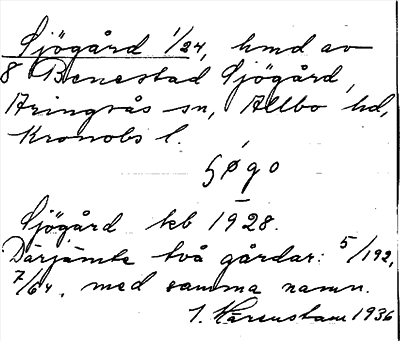 Sjögård 1/24, hmd av
8 Benestad Sjögård,
Aringsås sn, Allbo hd,
Kronobs l.
Sjögård kb 1928.
Därjämte två gårdar: 5/192,
7/64, med samma namn.
J. Härenstam 1936